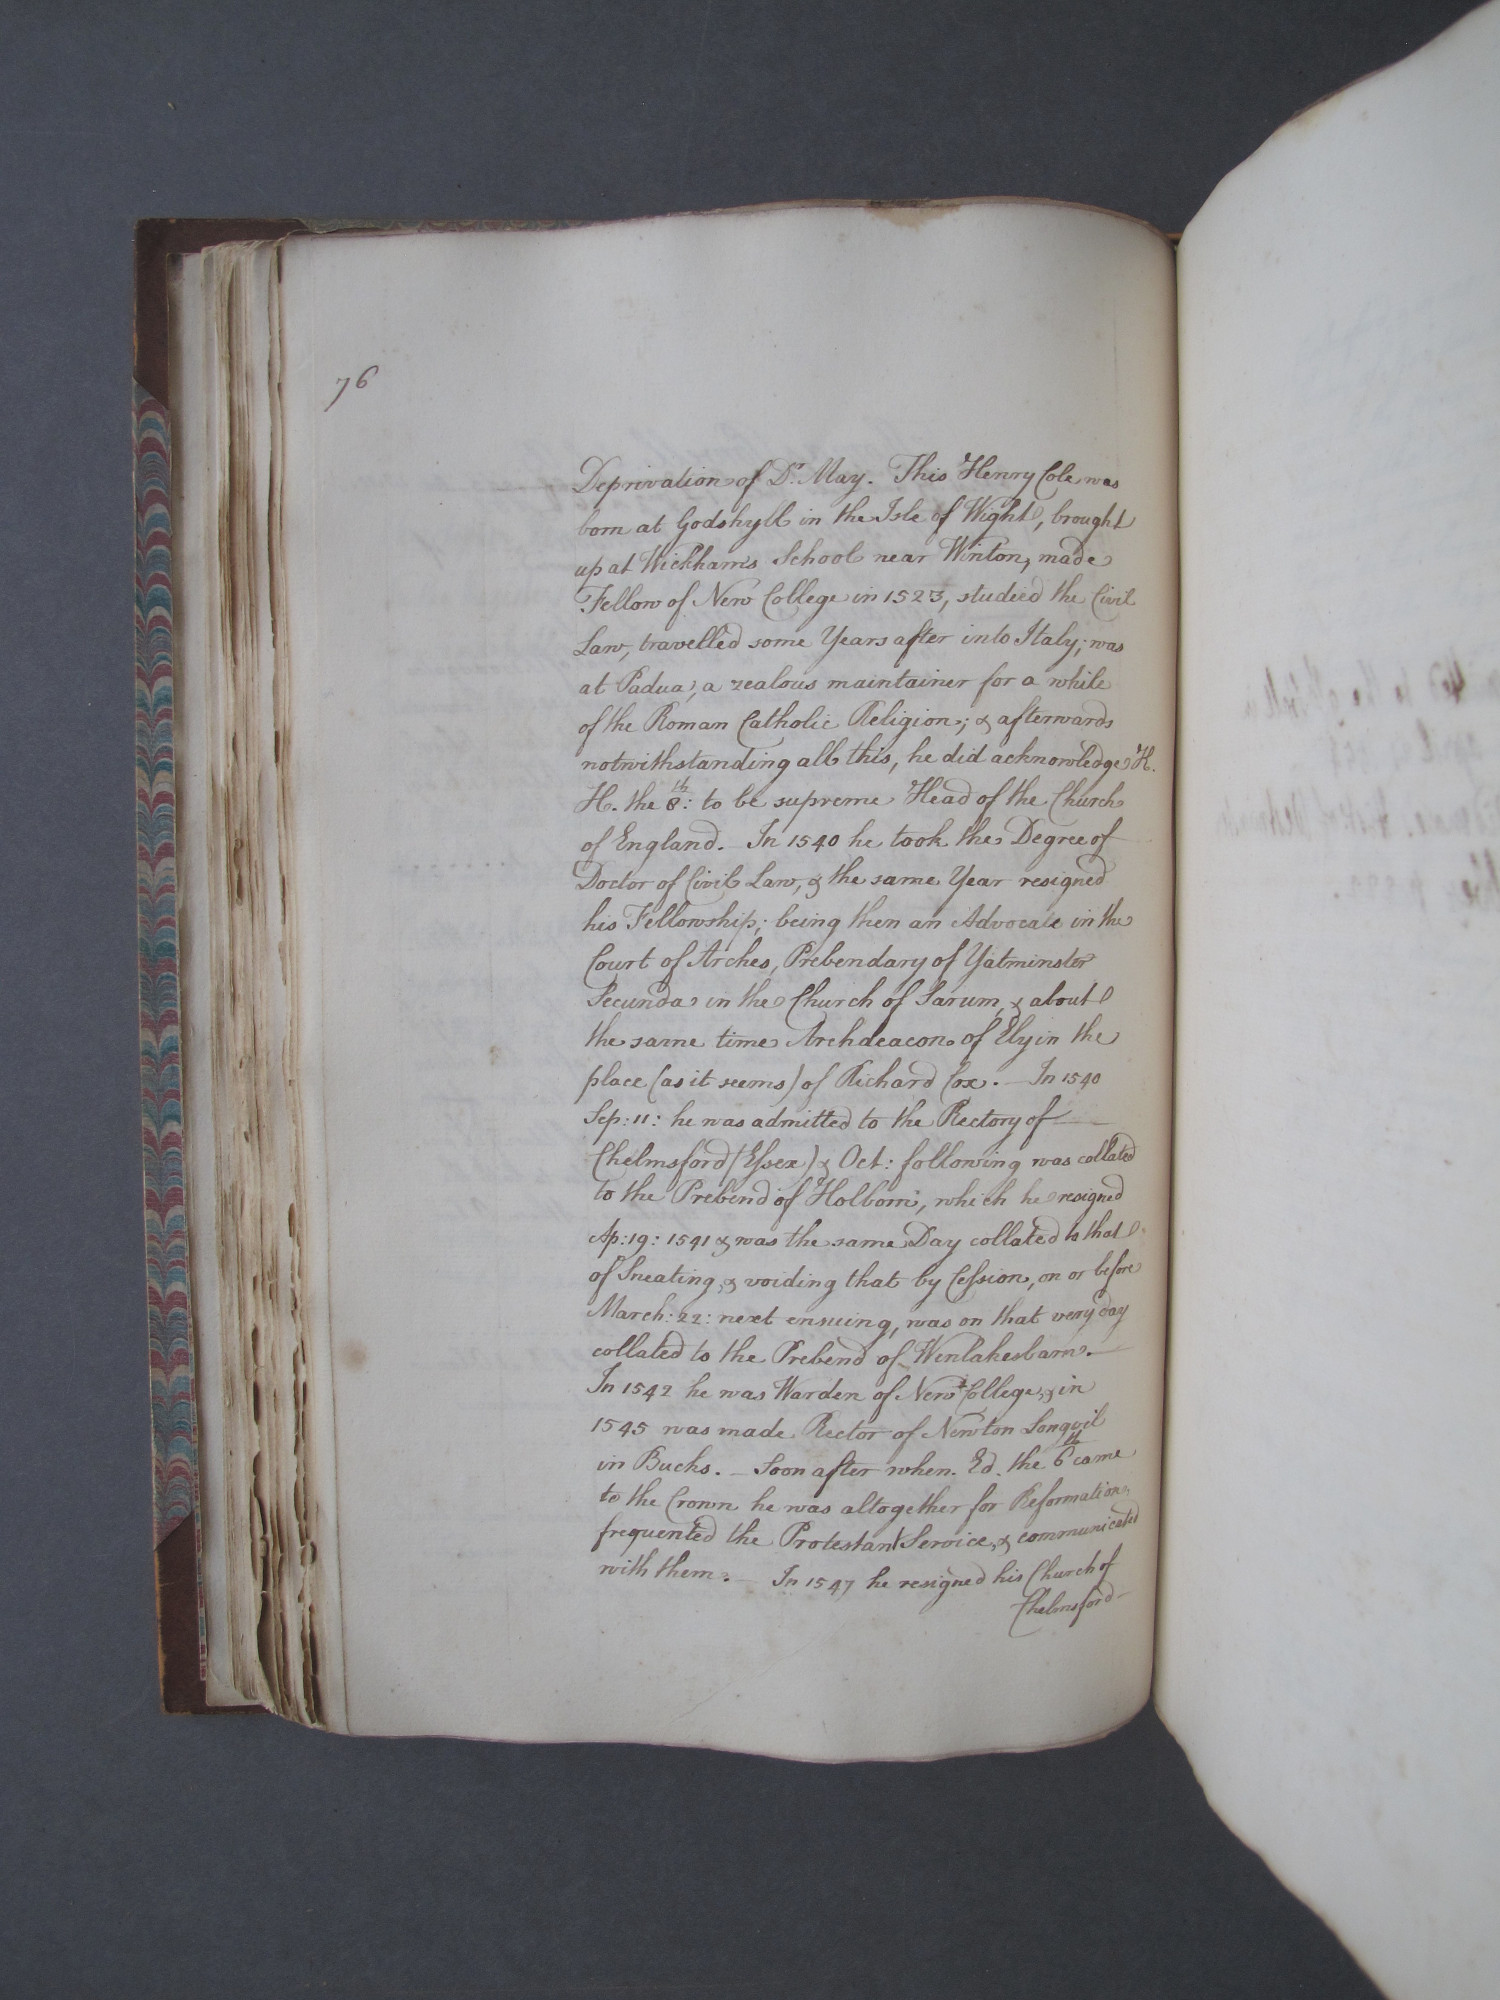 76
Deprivation of Dr. May. This Henry Cole was
born at Godshyll in the Isle of Wight, brought
up at Wickham's School near Winton, made
Fellow of New College in 1523, studied the Civil
Law, travelled some Years after into Italy; was
at Padua, a zealous maintainer for a while
of the Roman Catholic Religion; & afterwards
notwithstanding all this, he did acknowledge K.
H. the 8th: to be supreme Head of the Church
of England. In 1540 he took the Degree of
Doctor of Civil Law, & the same Year resigned
his Fellowship; being then an Advocate in the
Court of Arches, Prebendary of Yatminster
Secunda in the Church of Sarum, & about
the same time Archdeacon of Ely in the
place (as it seems) of Richard Cox. — In 1540
Sep: 11: he was admitted to the Rectory of
Chelmsford (Essex) & Oct: following was collated
to the Prebend of Holborn, which he resigned
Ap: 19: 1541 & was the same Day collated to that
of Sneating, & voiding that by Cession, on or before
March: 22: next ensuing, was on that very day
collated to the Prebend of Wenlakesbarn. —
In 1542 he was Warden of New College, & in
1545 was made Rector of Newton Longvil
in Bucks. — Soon after when Ed. the 6th came
to the Crown he was altogether for Reformation,
frequented the Protestant Service, & communicated
with them. — In 1547 he resigned his Church of
Chelmsford